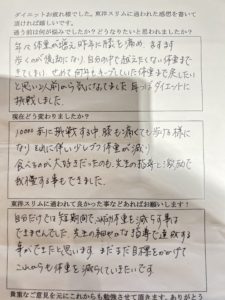 ダイエットお疲れ様でした。東洋スリムに通われた感想を書いて
頂ければ嬉しいです。
通う前は何が悩みでしたか？どうなりたいと思われましたか？
年々体重が増え昨年に膝を痛め ますます
歩くのが億劫になり 自分の中で越えたくない体重まで
きてしまい せめて何年もキープしていた体重まで戻したい
と思い 以前から気になってました 耳つぼダイエットに
挑戦しました。
現在どう変わりましたか？
10000歩に挑戦する中 膝も痛くても歩ける様に
なり それに伴い少しづつ体重が減り
食べるのが大好きだったのも 先生の指導と激励で
我慢する事もできました。
東洋スリムに通われて良かった事などあればお願いします！
自分だけでは短期間で 体重を減らす事は
できませんでした 先生の細やかな指導で達成する
事ができたと思います まだまだ目標をかかげて
これからも体重を減らしていきたいです。
貴重なご意見を元にこれからも勉強させて頂きます。ありがとう